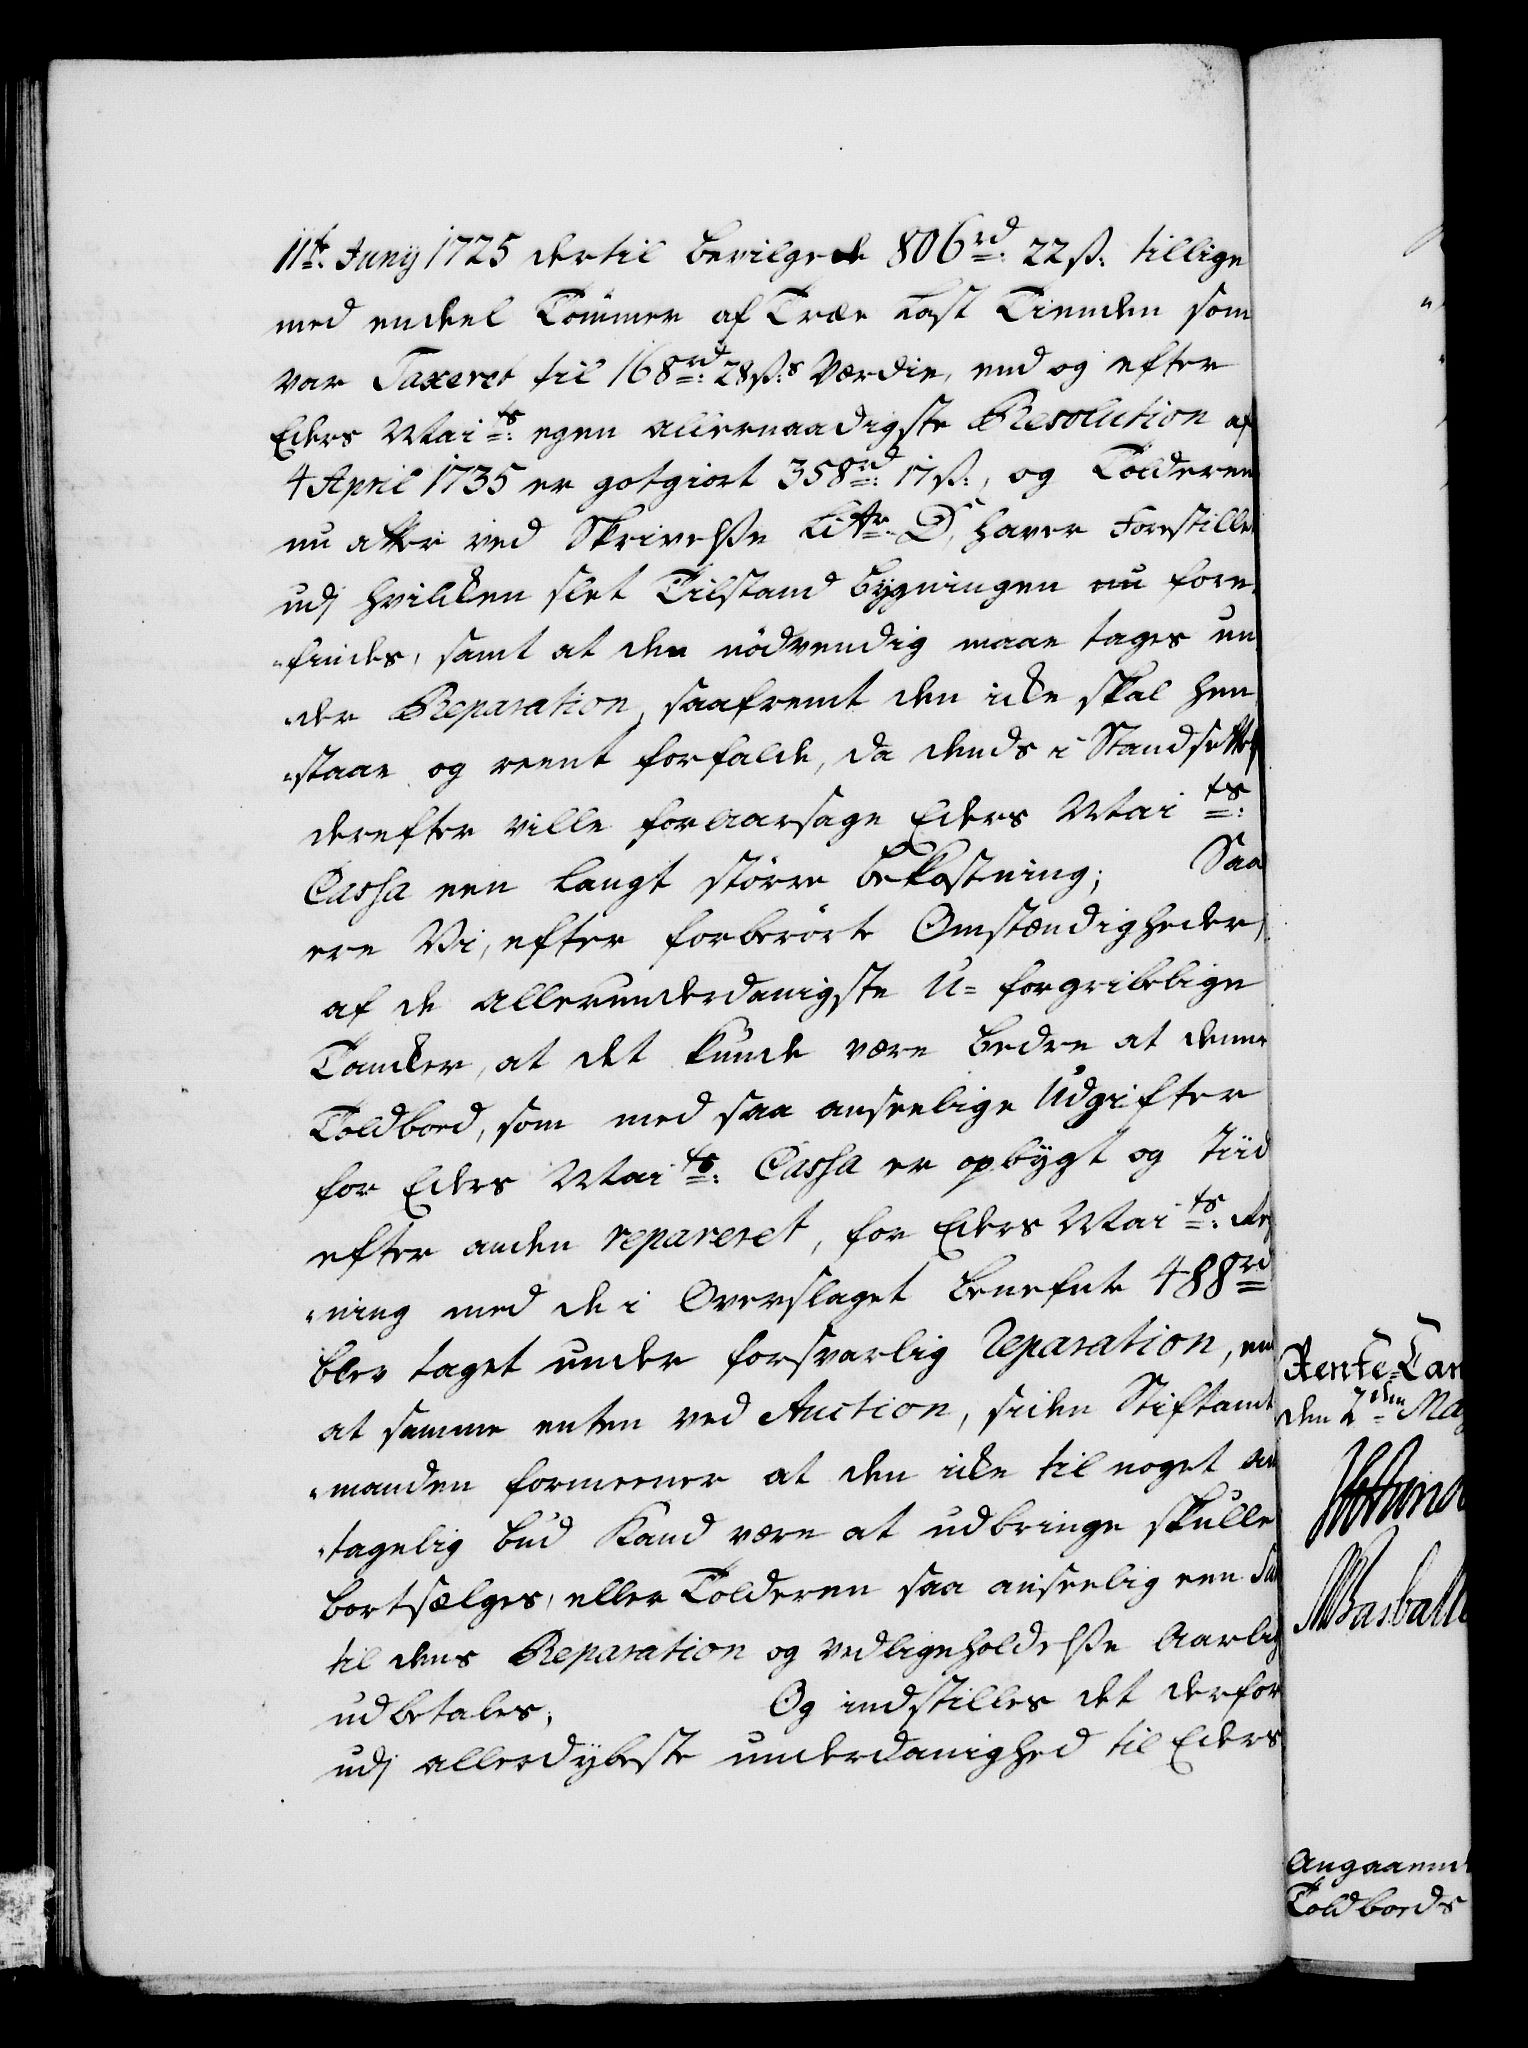 11te. Juny 1725 dertil bevilgede 806rd: 22ß: tillige
med endeel Tømmer af Træe Last Tienden som
var Taxeret til 168rd: 28ß:s Værdie, end og efter
Eders Maits: egen allernaadigste Resolution af
4 April 1735 er gotgiort 358rd: 17ß:, og Tolderen
nu atter ved Skrivelße Litr. D, haver forestillet
udj hvilcken slet Tilstand bygningen nu fore-
-findes, samt at den nödvendig maae tages un
-der Reparation, saafremt den icke skal hen
-staae og reent forfalde, da dends i Standsettelse
derefter ville foraarsage Eders Maits:
Cassa een langt större bekostning; Saa
ere Vi, efter forberörte Omstændigheder,
af de allerunderdanigste U-forgribelige
Tancker, at det kunde være bedre at denne
Toldboed, som med saa anseelige Udgifter
for Eders Maits: Cassa er opbygt og Tiid
efter anden repareret, for Eders Maits: Reg
-ning med de i Overslaget benefnte 488rd
blev taget under forsvarlig reparation, end
at samme enten ved Auction, siden Stiftamt
-manden formeener at den icke til noget an
-tagelig bud Kand være at udbringe skulle
bortsælges, eller Tolderen saa anseelig een Sum
til dens Reparation og vedligeholdelße Aarlig
udbetales; Og indstilles det derfor
udj allerdybeste underdanighed til Eders
Rente-Cam
den 2den May
Angaaende
Toldboeds